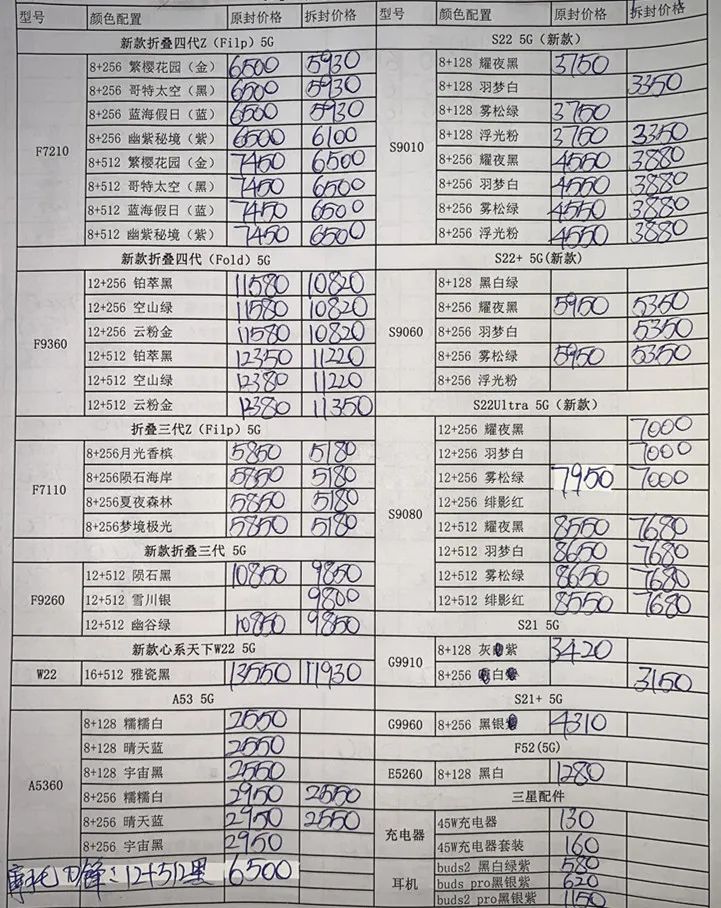 型号 颜色配置 原封价格 拆封价格
新款折叠四代Z（Filp）5G
F7210
8+256 繁樱花园（金） 6500 5930
8+256 哥特太空（黑） 6500 5930
8+256 蓝海假日（蓝） 6500 5930
8+256 幽紫秘境（紫） 6500 6100
8+512 繁樱花园（金） 7450 6500
8+512 哥特太空（黑） 7450 6500
8+512 蓝海假日（蓝） 7450 6500
8+512 幽紫秘境（紫） 7450 6500
新款折叠四代（Fold）5G
F9360
12+256 铂萃黑 11580 10820
12+256 空山绿 11580 10820
12+256 云粉金 11580 10820
12+512 铂萃黑 12350 11220
12+512 空山绿 12380 11220
12+512 云粉金 12380 11350
折叠三代Z（Filp）5G
F7110
8+256月光香槟 5850 5180
8+256陨石海岸 5850 5180
8+256夏夜森林 5850 5180
8+256梦境极光 5850 5180
新款折叠三代 5G
F9260
12+512 陨石黑 10850 9850
12+512 雪川银 9800
12+512 幽谷绿 10850 9850
新款心系天下W22 5G
W22 16+512 雅瓷黑 13550 11930
A53 5G
A5360
8+128 糯糯白 2550
8+128 晴天蓝 2550
8+128 宇宙黑 2550
8+256 糯糯白 2950 2550
8+256 晴天蓝 2950 2550
8+256 宇宙黑 2950
12+512黑 6500
型号 颜色配置 原封价格 拆封价格
S22 5G（新款）
S9010
8+128 耀夜黑 3750
8+128 羽梦白 3350
8+128 雾松绿 3750
8+128 浮光粉 3750 3350
8+256 耀夜黑 4550 3880
8+256 羽梦白 4550 3880
8+256 雾松绿 4550 3880
8+256 浮光粉 4550 3880
S22+ 5G(新款）
S9060
8+128 黑白绿
8+256 耀夜黑 5950 5350
8+256 羽梦白 5350
8+256 雾松绿 5950 5350
8+256 浮光粉
S22Ultra 5G（新款）
S9080
12+256 耀夜黑 7000
12+256 羽梦白 7000
12+256 雾松绿 7950 7000
12+256 绯影红
12+512 耀夜黑 8550 7680
12+512 羽梦白 8650 7680
12+512 雾松绿 8650 7680
12+512 绯影红 8550 7680
S21 5G
G9910
8+128 灰紫 3420
8+256 白 3150
S21+ 5G
G9960 8+256 黑银 4310
F52(5G)
E5260 8+128 黑白 1280
三星配件
充电器
45W充电器 130
45W充电器套装 160
耳机
buds2 黑白绿紫 580
buds pro黑银紫 620
buds2 pro黑银紫 1150